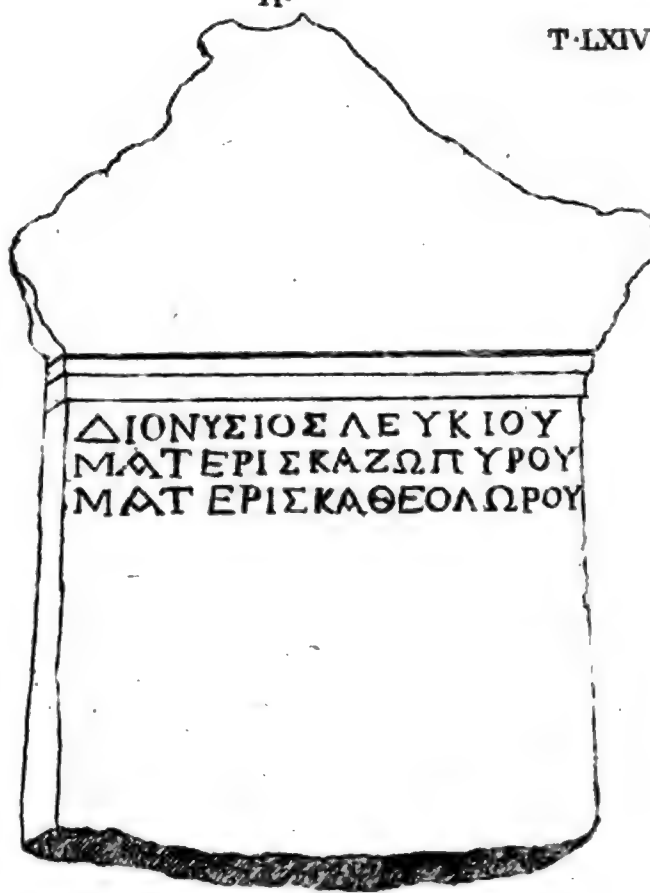 T·LXIV
ΔΙΟΝΥΣΙΟΣ ΛΕΥΚΙΟΥ
ΜΑΤΕΡΙΣΚΑ ΖΩΠΥΡΟΥ
ΜΑΤΕΡΙΣΚΑ ΘΕΟΛΩΡΟΥ